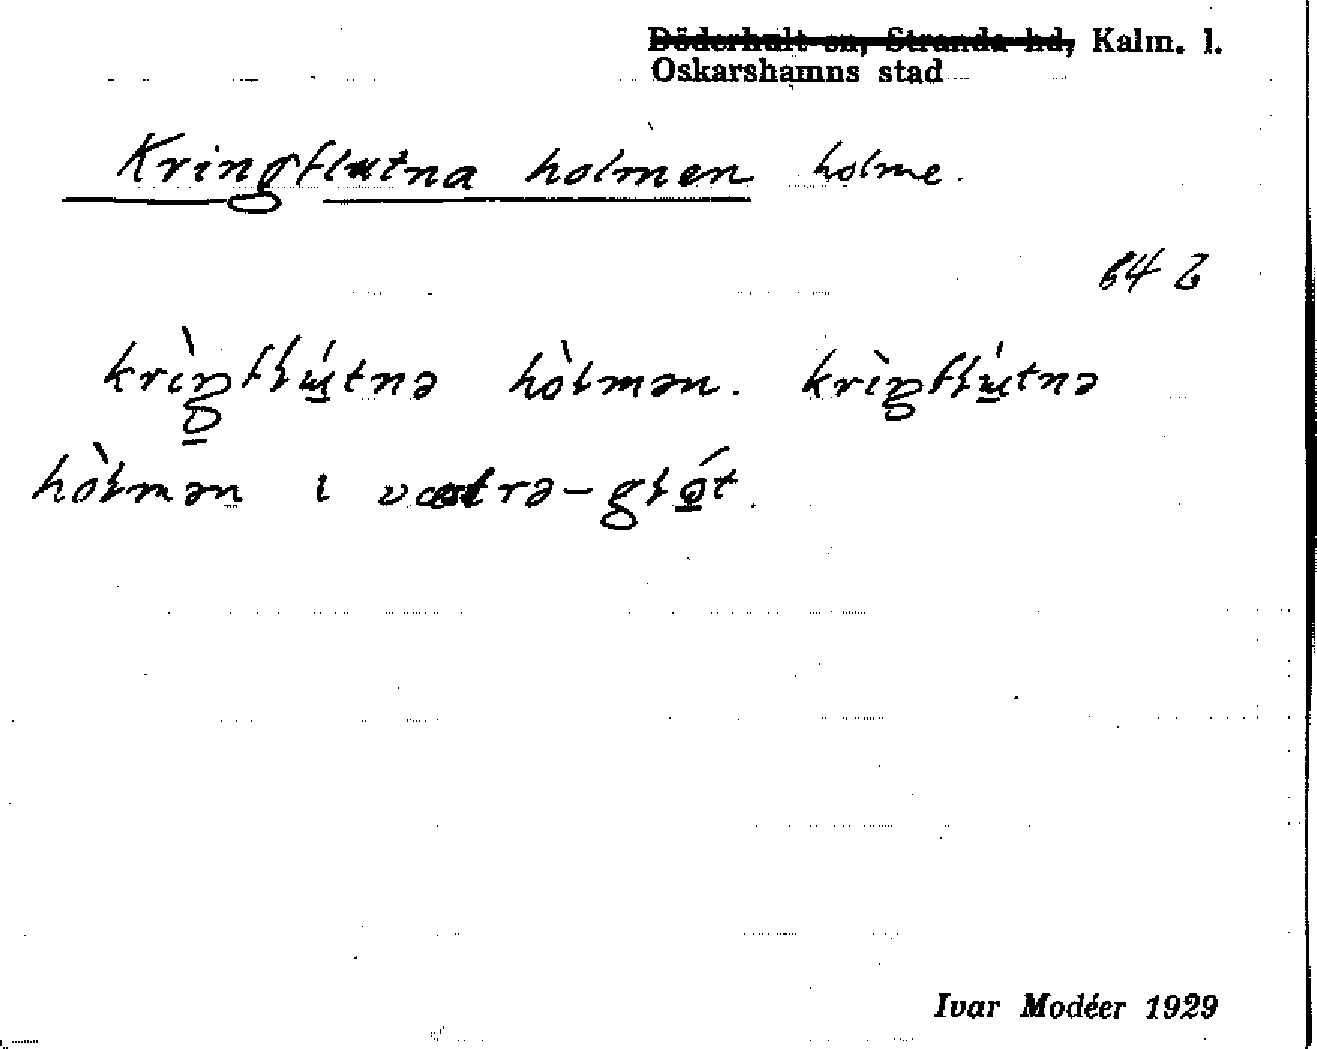 Döderhult sn, Stranda hd, Kalm. l.
Oskarshamns stad
Kringflutna holmen holme.
64 Z
krìŋflʉ́tnə hòlmən. krìŋflʉ́tnə
hòlmən ɩ væstrə-glo̱t.
Ivar Modéer 1929